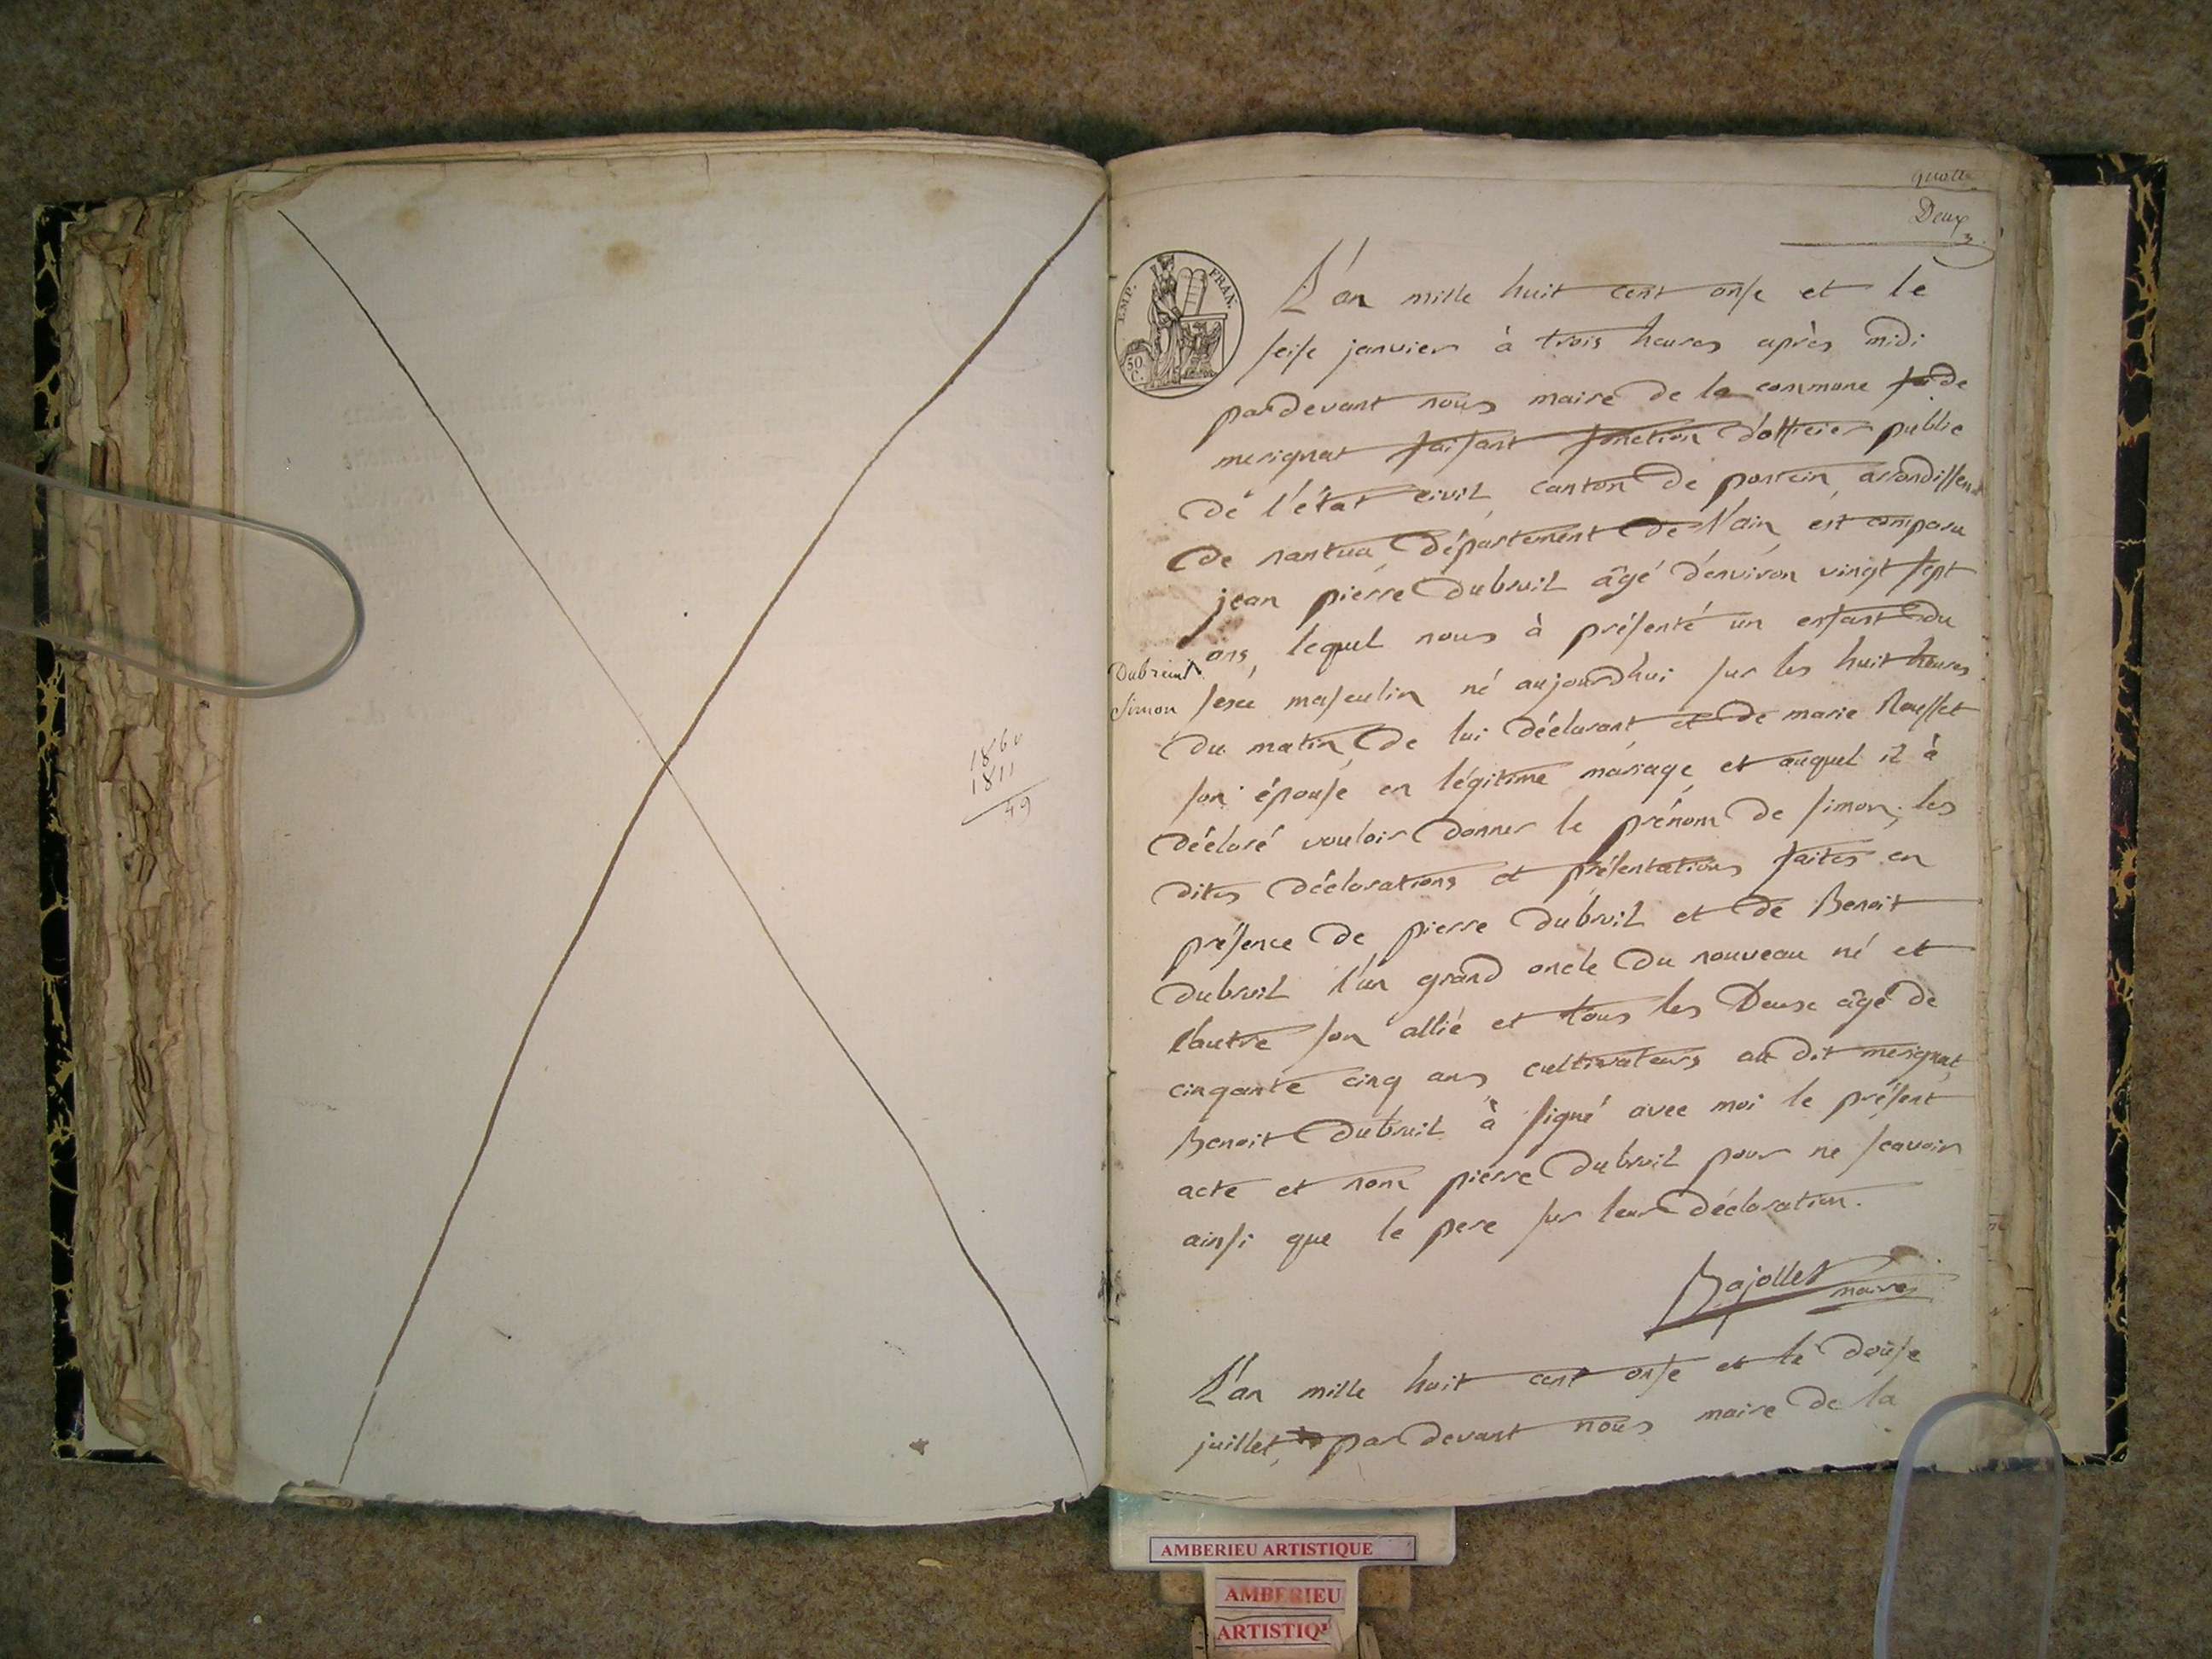 1860
1811
49
quotte
Deux
EMP. FRAN.
50 C.
L'an mille huit cent onse et le
seise janvier à trois heures après midi
pardevant nous maire de la commune de
merignat faisant fonction d'officier public
de l'état civil, canton de poncin, arrondissent
de nantua département de l'ain, est comparu
jean pierre dubruil âgé d'environ vingt sept
ans, lequel nous à présenté un enfant du
Dubreuil
Simon
sexe masculin né aujourdhui sur les huit heures
du matin, de lui déclarant et de marie Rousset
son épouse en légitime mariage, et auquel il à
déclaré vouloir donner le prénom de simon; les
dites déclarations et présentations faites en
présence de pierre dubruil et de Benoit
dubruil l'un grand oncle du nouveau né et
l'autre son allié et tous les deux âgé de
cinqante cinq ans, cultivateurs au dit merignat,
Benoit dubruil à signé avec moi le présent
acte et non pierre dubruil pour ne scavoir
ainsi que le pere sur leur déclaration.
Bajollet
maire
L'an mille huit cent onse et le douse
juillet, par devant nous maire de la
AMBERIEU ARTISTIQUE
AMBERIEU
ARTISTIQ